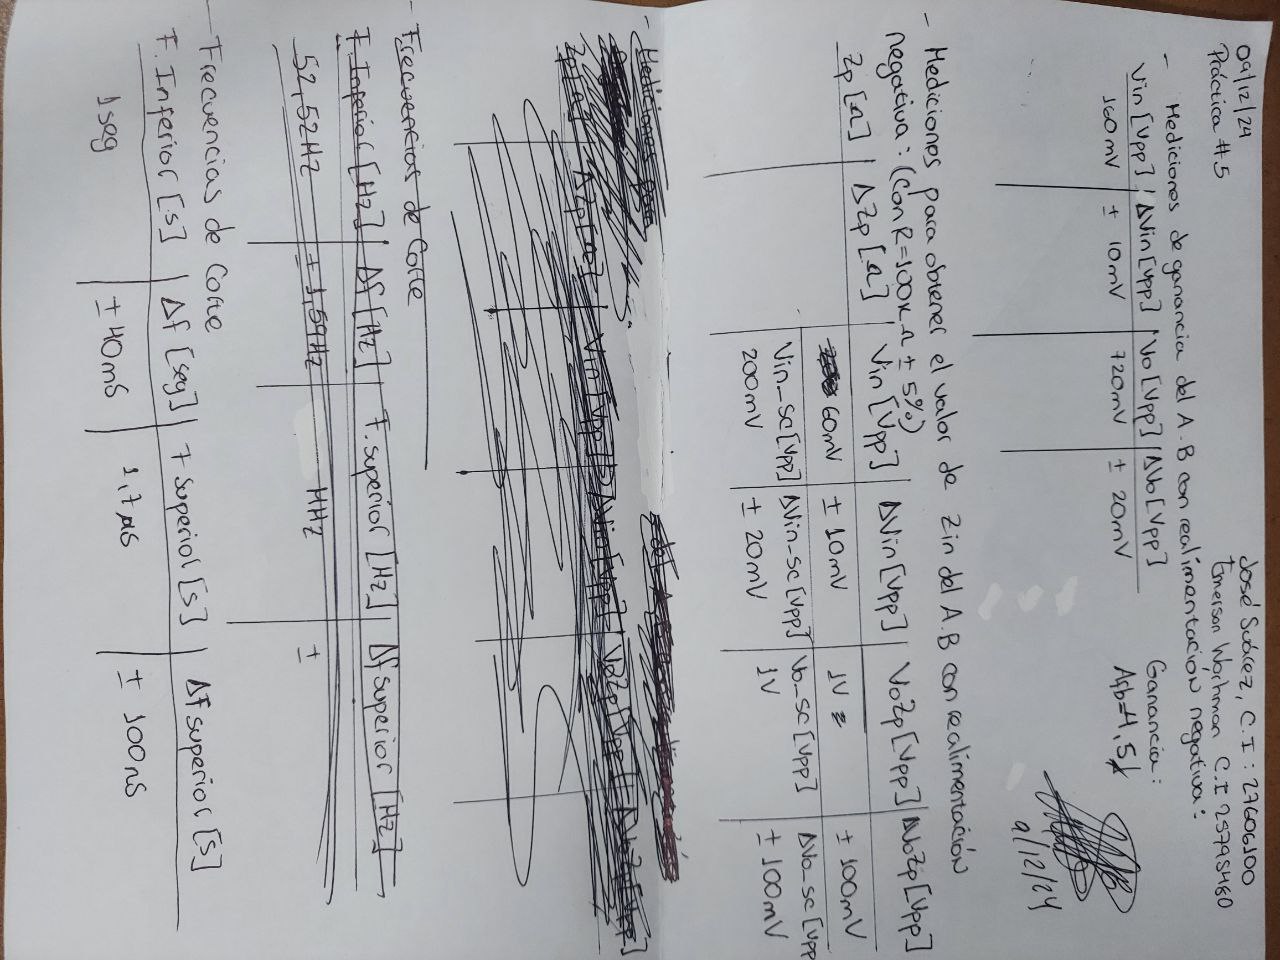 09/12/24
José Suárez, C.I: 27606100
Práctica #5
Emerson Workman C.I 25795460
- Mediciones de ganancia del A.B con realimentación negativa:
Vin [Vpp] | ΔVin [Vpp] | Vo [Vpp] | ΔVo [Vpp]
Ganancia:
160mV | ± 10mV | 720mV | ± 20mV
Afb=4,5
9/12/24
- Mediciones para obtener el valor de Zin del A.B con realimentación
negativa: (Con R=100KΩ ± 5%)
Zp [Ω] | ΔZp [Ω] | Vin [Vpp] | ΔVin [Vpp] | VoZp [Vpp] | ΔVoZp [Vpp]
60mV | ± 10mV | 1V | ± 100mV
Vin-sc [Vpp] | ΔVin-sc [Vpp] | Vo-sc [Vpp] | ΔVo-sc [Vpp
200mV | ± 20mV | 1V | ± 100mV
- Mediciones para
Zp [Ω] | ΔZp [Ω] | Vin [Vpp] | ΔVin [Vpp] | VoZp [Vpp] | ΔVoZp [Vpp]
- Frecuencias de Corte
F. Inferior [Hz] | Δf [Hz] | F. superior [Hz] | Δf superior [Hz]
52,52Hz | ± 1,59Hz | MHz | ±
- Frecuencias de Corte
F. Inferior [s] | Δf [seg] | F superior [s] | Δf superior [s]
1seg | ± 40mS | 1,7 µS | ± 100nS